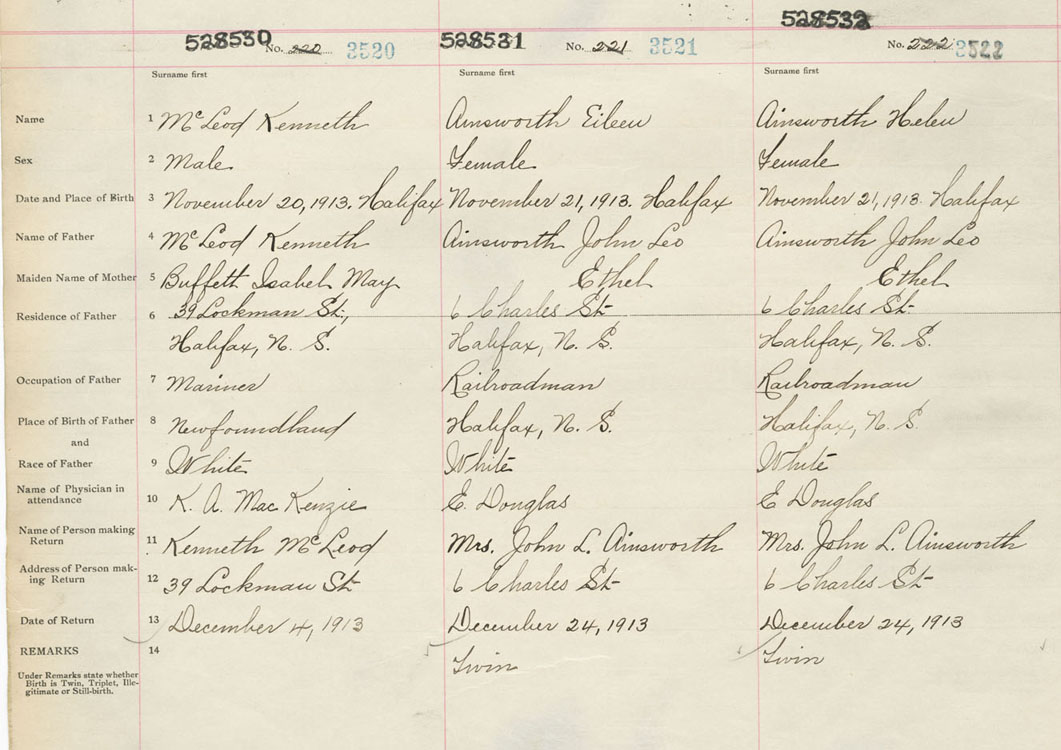 528530 528531 528532
No. 220 3520 No. 221 3521 No. 222 3522
Surname first Surname first Surname first
Name 1 McLeod Kenneth Ainsworth Eileen Ainsworth Helen
Sex 2 Male Female Female
Date and Place of Birth 3 November 20, 1913. Halifax November 21, 1913. Halifax November 21, 1913. Halifax
Name of Father 4 McLeod Kenneth Ainsworth John Leo Ainsworth John Leo
Maiden Name of Mother 5 Buffett Isabel May Ethel Ethel
Residence of Father 6 39 Lockman St., 6 Charles St. 6 Charles St.
Halifax, N. S. Halifax, N. S. Halifax, N. S.
Occupation of Father 7 Mariner Railroadman Railroadman
Place of Birth of Father 8 Newfoundland Halifax, N. S. Halifax, N. S.
and
Race of Father 9 White White White
Name of Physician in
attendance 10 K. A. MacKenzie E. Douglas E Douglas
Name of Person making
Return 11 Kenneth McLeod Mrs. John L. Ainsworth Mrs. John L. Ainsworth
Address of Person mak-
ing Return 12 39 Lockman St. 6 Charles St. 6 Charles St.
Date of Return 13 December 4, 1913 December 24, 1913 December 24, 1913
REMARKS 14 Twin Twin
Under Remarks state whether
Birth is Twin, Triplet, Ille-
gitimate or Still-birth.